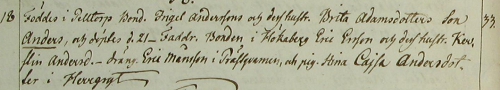 18 Föddes i Pelltorp Bond. Ingel Anderssons och dess hust. Brita Adamsdotters Son 33.
Anders, och döptes d. 21 – Faddr. Bonden i Hökaberg Eric Ersson och dess hust. Ker-
stin Andersd. – dräng. Eric Månsson i Prästqvarnen, och pig. Stina Cajsa Andersdot-
ter i Herregrgt